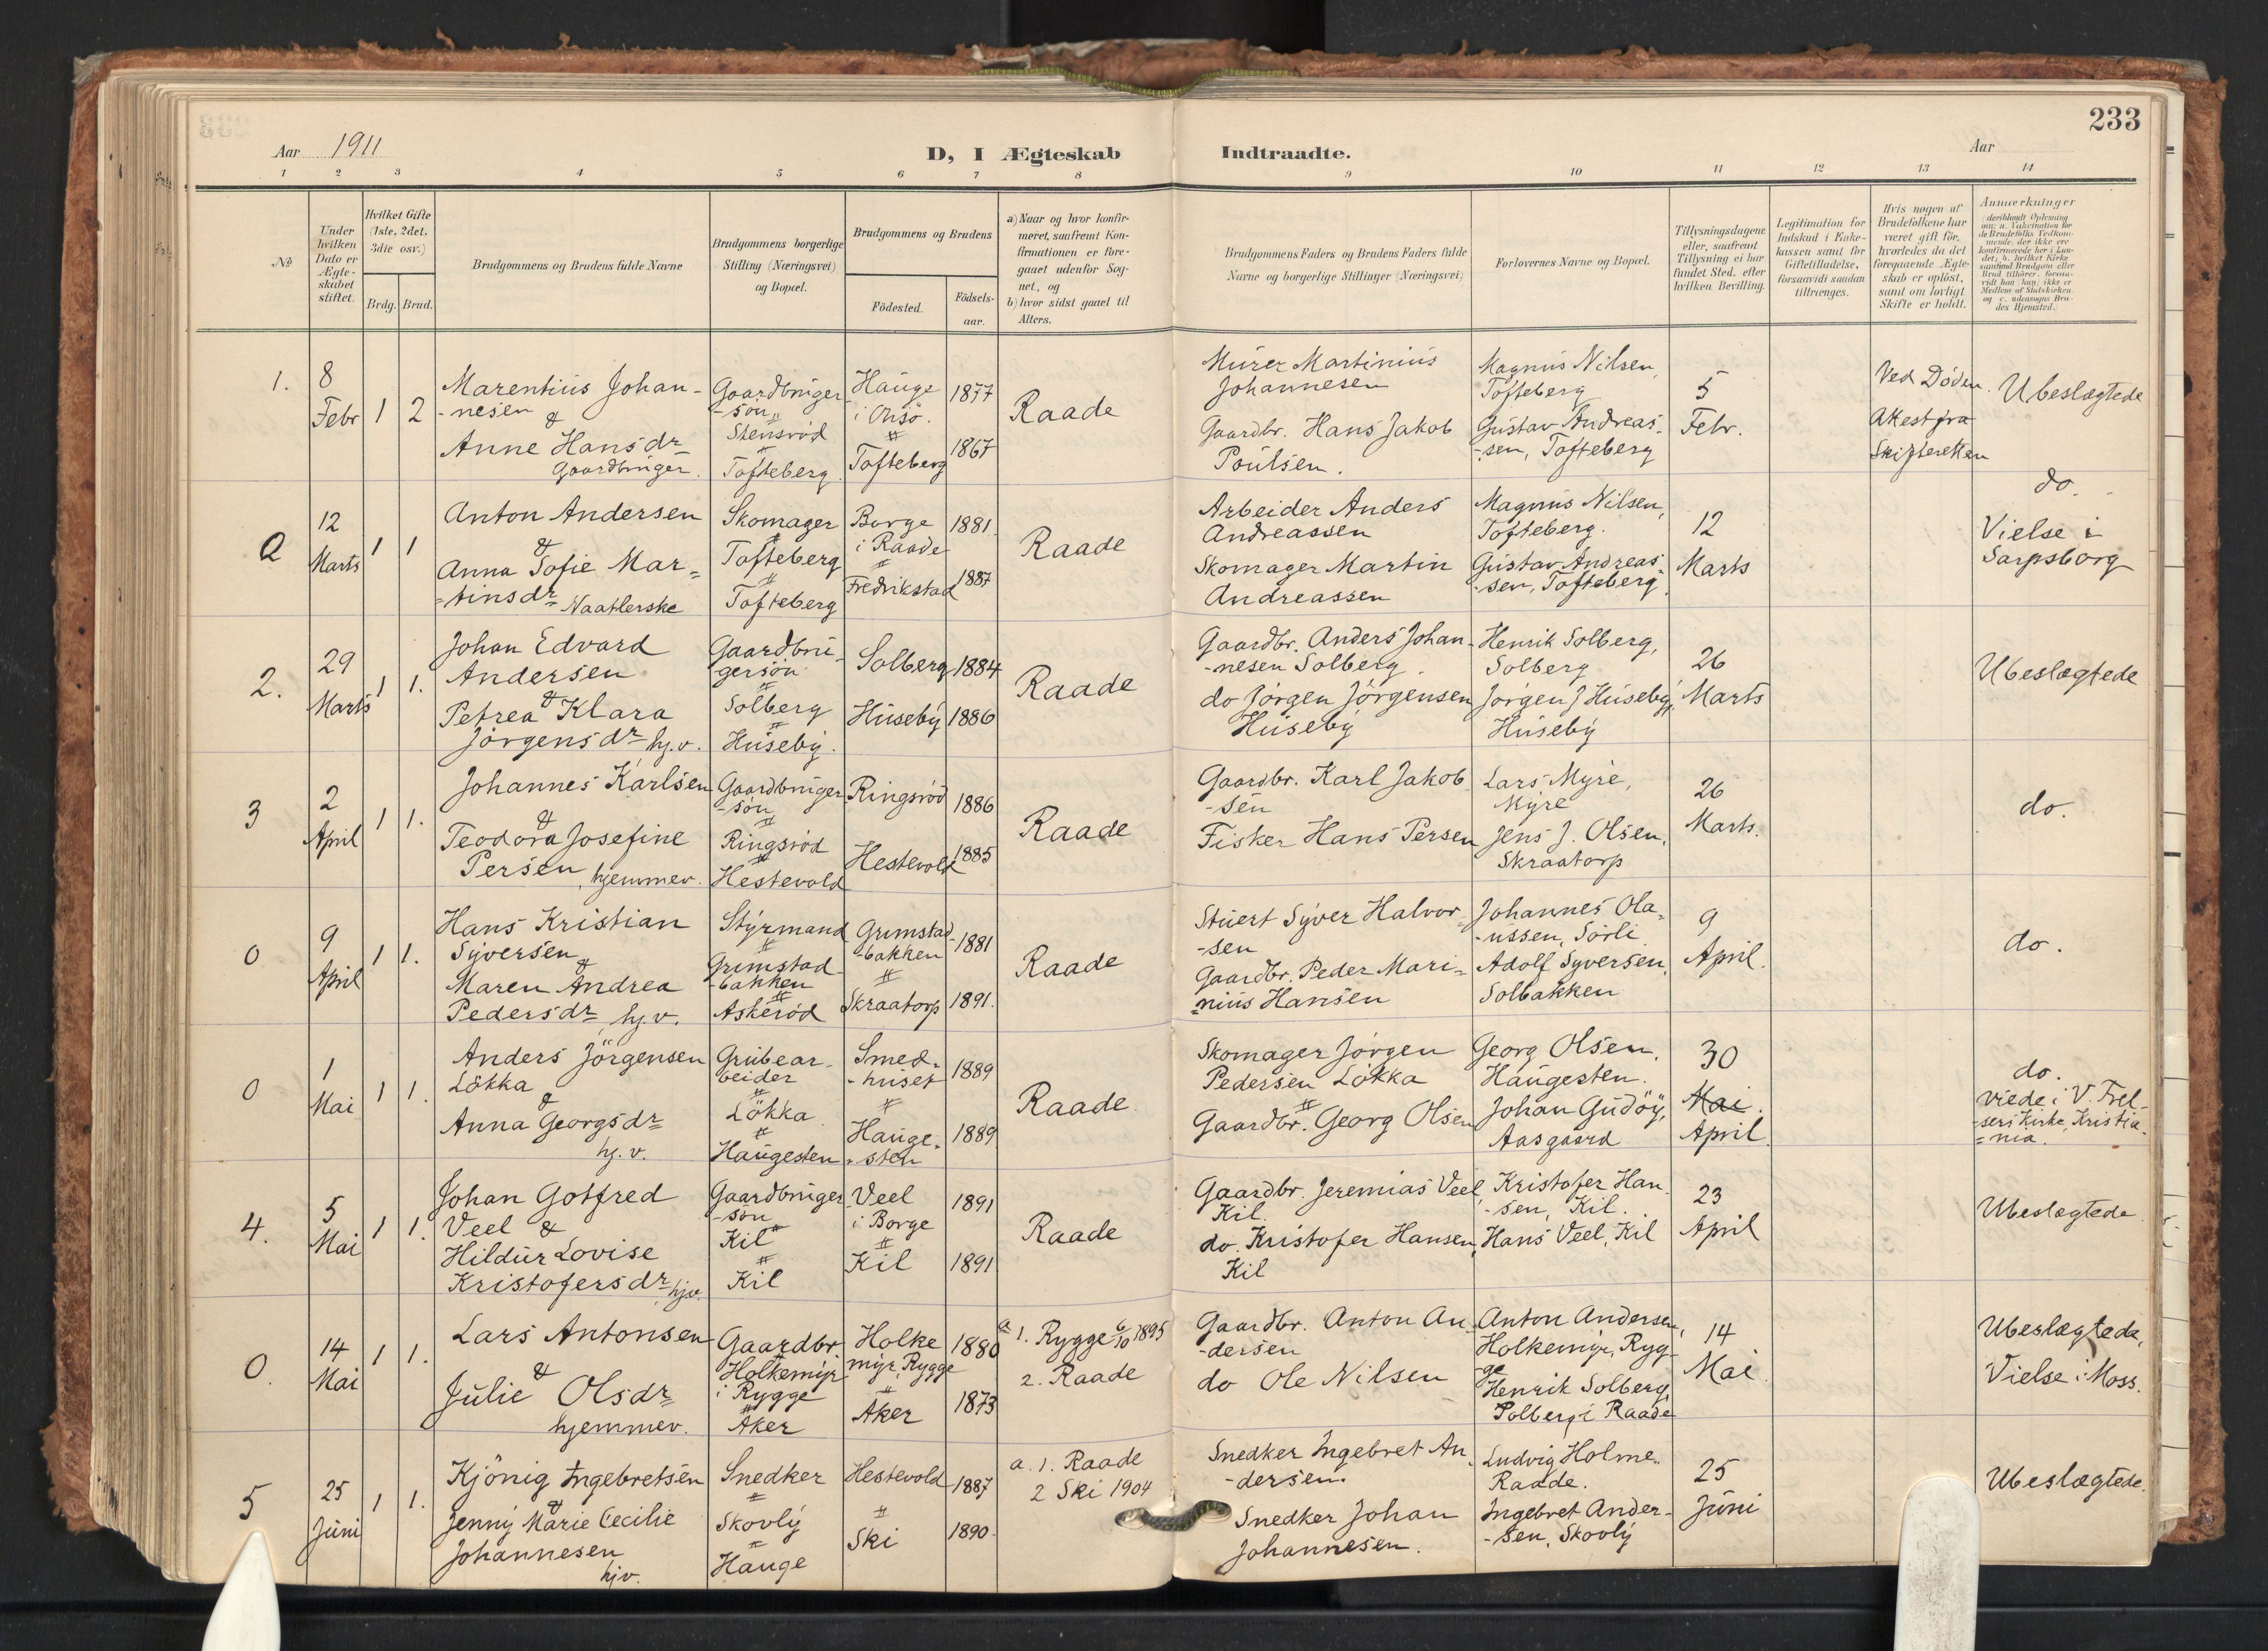 233
Aar 1911
D, I Ægteskab Indtraadte.
Aar
1 2 3 4 5 6 7 8 9 10 11 12 13 14
No
Under hvilken Dato er Ægteskabet stiftet.
Hvilket Gifte (1ste, 2det, 3die osv.)
Brdg. Brud.
Brudgommens og Brudens fulde Navne
Brudgommens borgerlige Stilling (Næringsvei) og Bopæl.
Brudgommens og Brudens
Födested.
Födsels-aar.
a) Naar og hvor konfirmeret, saafremt Konfirmationen er foregaaet udenfor Sognet, og
b) hvor sidst gaaet til Alters.
Brudgommens Faders og Brudens Faders fulde Navne og borgerlige Stillinger (Næringsvei)
Forlovernes Navne og Bopæl.
Tillysningsdagene eller, saafremt Tillysning ei har fundet Sted, efter hvilken Bevilling.
Legitimation for Indskud i Enkekassen samt for Giftetilladelse, forsaavidt saadan tiltrænges.
Hvis nogen af Brudefolkene har været gift för, hvorledes da det foregaaende Ægteskab er oplöst, samt om lovligt Skifte er holdt.
Anmærkninger (deriblandt Oplysning om: a. Vakcination for de Brudefolks Vedkommende, der ikke ere konfirmerede her i Landet; b. hvilket Kirkesamfund Brudgom eller Brud tilhörer, forsaavidt han (hun) ikke er Medlem af Statskirken og c. udensogns Brudes Hjemsted.
1.
8
Febr
1 2
Marentius Johan-
-nesen
&
Anne Hansdr
Gaardbruger.
Gaardbruger
-søn
Stensrød
"
Tofteberg.
Hauge
i Onsø.
"
Tofteberg
1877
1867
Raade
Murer Martinius
Johannesen
Gaardbr. Hans Jakob
Poulsen.
Magnus Nilsen,
Tofteberg
Gustav Andreas-
-sen, Tofteberg
5
Febr.
Ved Døden.
Attest fra
Skifteretten
Ubeslægtede
0
12
Marts
1 1
Anton Andersen
&
Anna Sofie Mar=
=tinsdr Naatlerske
Skomager
Tofteberg
"
Tofteberg
Borge
i Raade
"
Fredrikstad
1881
1887
Raade
Arbeider Anders
Andreassen
Skomager Martin
Andreassen
Magnus Nilsen,
Tofteberg.
Gustav Andreas-
-sen, Tofteberg
12
Marts
do.
Vielse i
Sarpsborg
2.
29
Marts
1 1.
Johan Edvard
Andersen
&
Petrea Klara
Jørgensdr hj.v.
Gaardbru-
gersøn
"
Solberg
"
Huseby.
Solberg
Huseby
1884
1886
Raade
Gaardbr. Anders Johan-
-nesen Solberg
do Jørgen Jørgensen
Huseby
Henrik Solberg,
Solberg
Jørgen J Huseby,
Huseby
26
Marts
Ubeslægtede
3
2
April
1 1.
Johannes Karlsen
&
Teodora Josefine
Persen, hjemmev.
Gaardbruger
-søn
"
Ringsrød
"
Hestevold
Ringsrød
Hestevold
1886
1885
Raade
Gaardbr. Karl Jakob
-sen
Fisker Hans Persen
Lars Myre,
Myre
Jens J. Olsen,
Skraatorp
26
Marts.
do.
0
9
April
1 1.
Hans Kristian
Syversen
&
Maren Andrea
Pedersdr, hj.v.
Styrmand
"
Grimstad-
-bakken
"
Askerød
Grimstad
-bakken
"
Skraatorp
1881
1891.
Raade
Stuert Syver Halvor-
-sen
Gaardbr. Peder Mari=
=nius Hansen
Johannes Ola-
-ussen, Sørli
Adolf Syversen,
Solbakken
9
April.
do.
0
1
Mai
1 1.
Anders Jörgensen
Lökka
&
Anna Georgsdr
hj.v.
Grubear-
beider
"
Lökka
"
Haugesten
Smed-
-huset
"
Hauge-
-sten
1889
1889
Raade.
Skomager Jørgen
Pedersen Løkka
"
Gaardbr. Georg Olsen
Georg Olsen,
Haugesten.
Johan Gudöy,
Aasgaard
30
Mai.
April.
do.
Viede i V. Frel-
-sers Kirke, Kristia-
=nia.
4.
5
Mai
1 1.
Johan Gotfred
Veel &
Hildur Lovise
Kristofersdr, hjv.
Gaardbruger
-søn
Kil "
"
Kil
Veel
i Borge
"
Kil
1891
1891
Raade
Gaardbr. Jeremias Veel,
Kil.
do. Kristofer Hansen,
Kil
Kristofer Han-
-sen, Kil.
Hans Veel, Kil
23
April
Ubeslægtede
0.
14
Mai
1 1.
Lars Antonsen
&
Julie Olsdr
hjemmev.
Gaardbr.
Holkemyr
i Rygge
"
Aker
Holke
myr, Rygge
"
Aker
1880
1873
a 1. Rygge 6/10 1895
2. Raade
Gaardbr. Anton An-
-dersen
do Ole Nilsen
Anton Andersen,
Holkemyr, Ryg-
-ge
Henrik Solberg,
Solberg i Raade
14
Mai.
Ubeslægtede,
Vielse i Moss.
5
25
Juni
1 1.
Kjönig Ingebretsen
&
Jenny Marie Cecilie
Johannesen
hjv.
Snedker
"
Skovly
"
Hauge
Hestevold
"
Ski
1887
1890.
a. 1. Raade
2 Ski 1904
Snedker Ingebret An-
-dersen.
Snedker Johan
Johannesen.
Ludvig Holme.
Raade.
Ingebret Ander-
-sen, Skovly
25
Juni
Ubeslægtede.